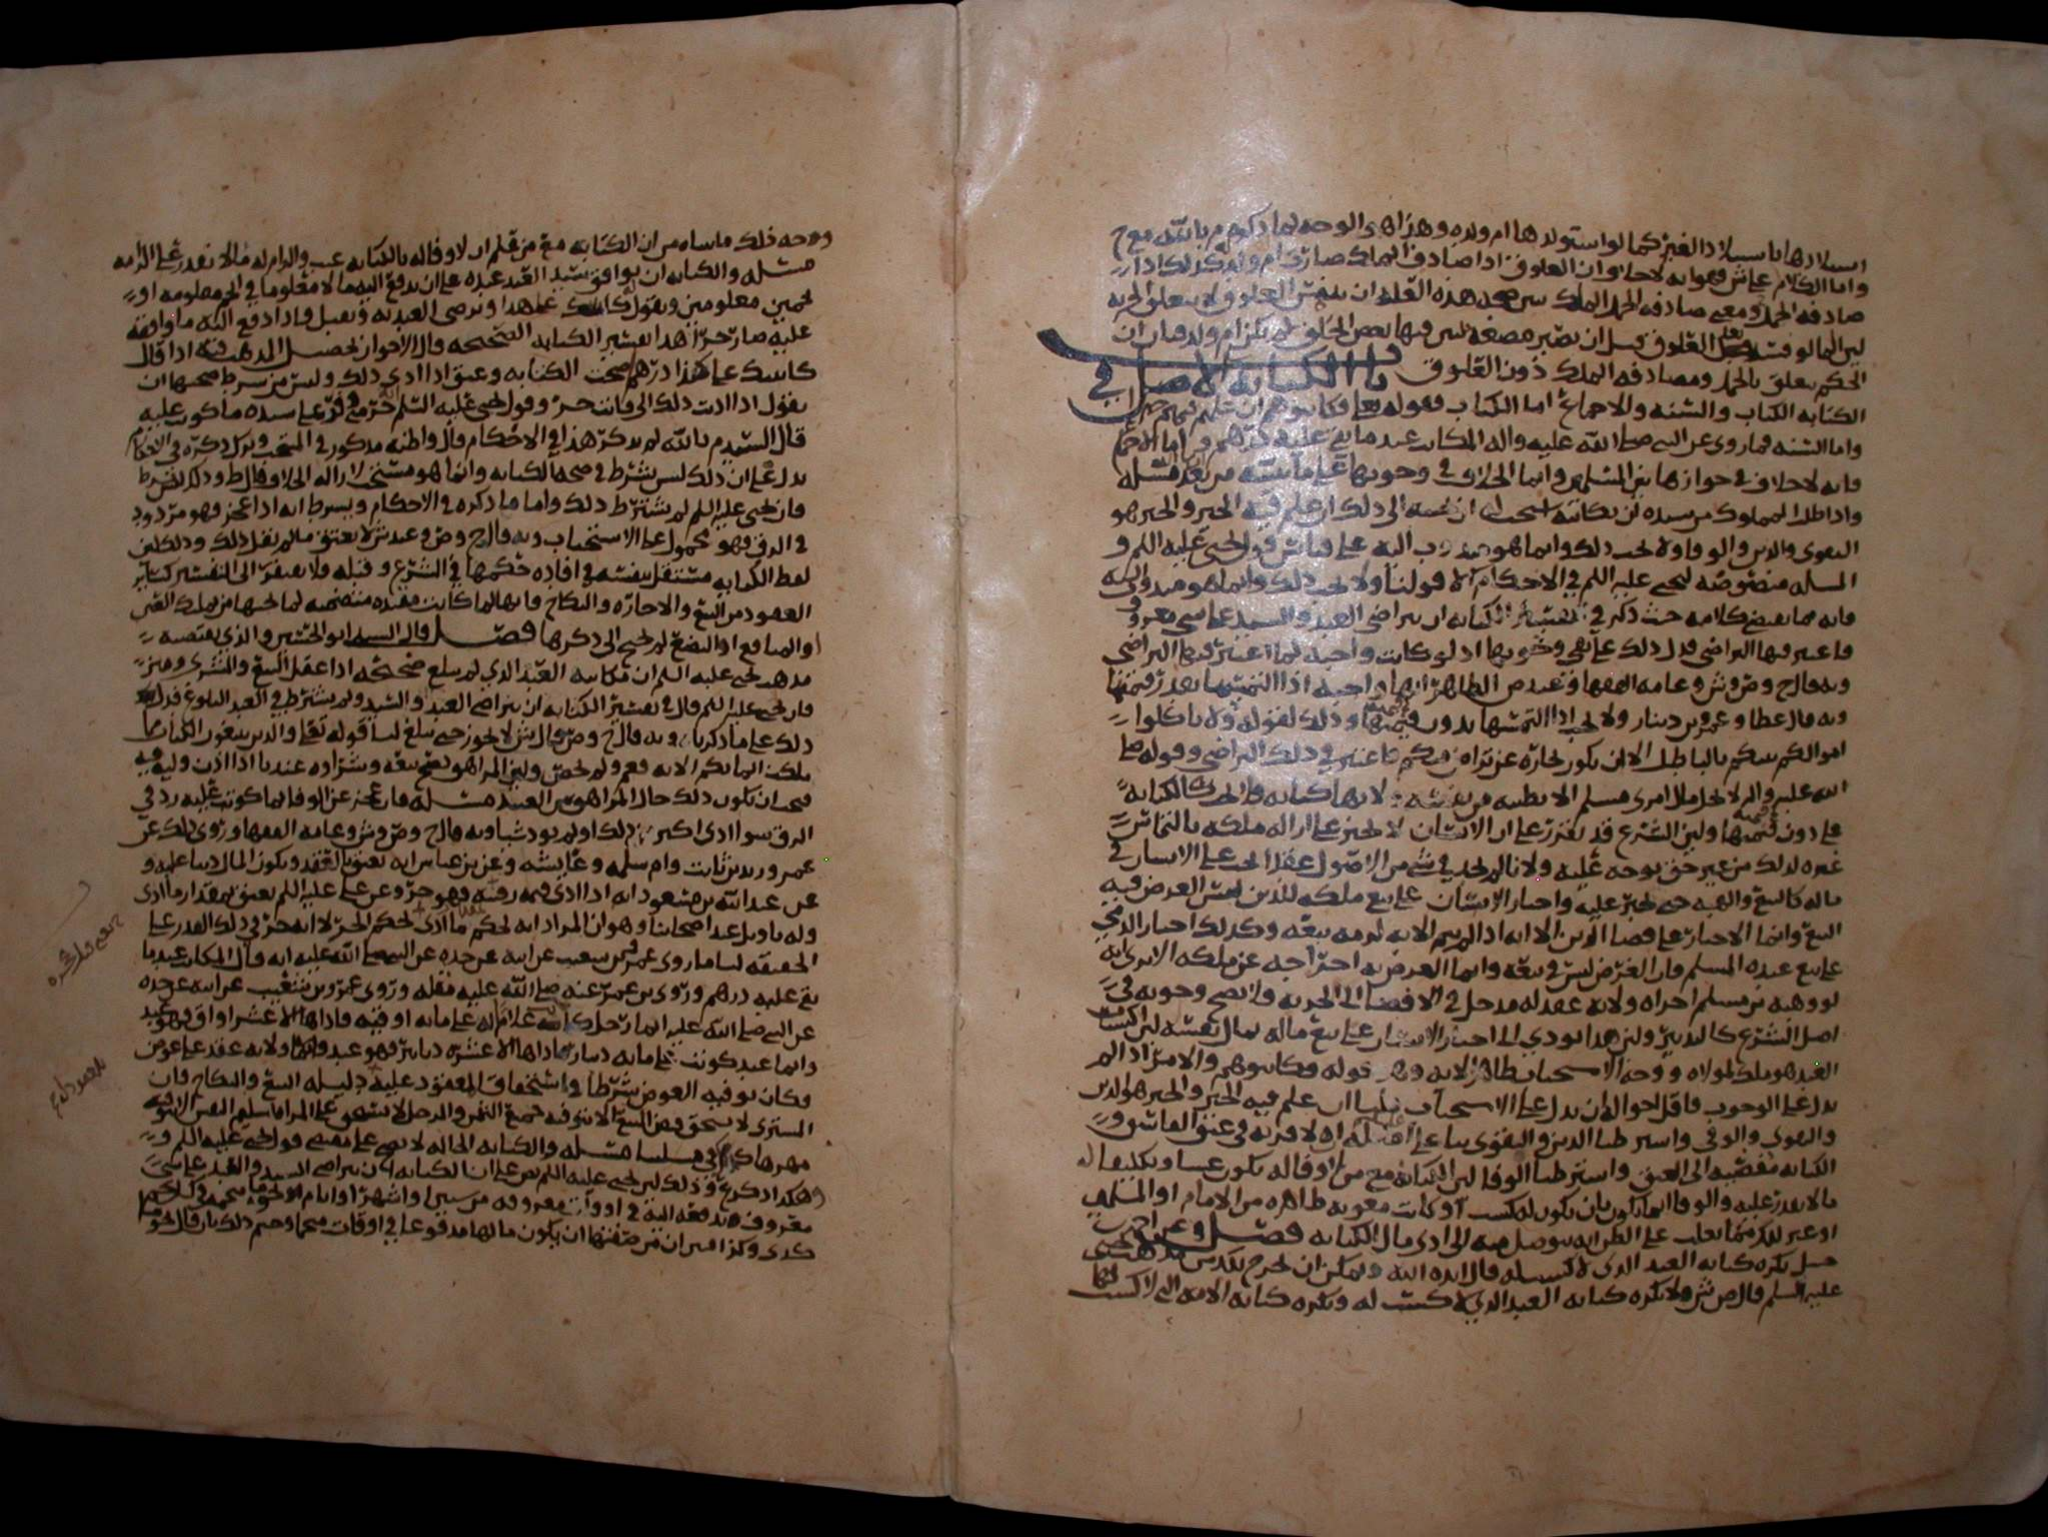 استيلادها باستيلاد الغير كما لو استولدها ام ولده وهذا هو الوجه لما ذكره م بالله مع ح
صادفه الحمل ومعنى صادفه الحمل الملك
الحكم يتعلق بالحمل ومصادفه الملك دون العلوق باب الكتابه الاصل في
الكتابه الكتاب والسنه والاجماع اما الكتاب فقوله تعالى فكاتبوهم ان علمتم فيهم خيرا
واما السنه فما روي عن النبي صلى الله عليه واله المكاتب عبد ما بقي عليه درهم واما الاجماع
فانه لا خلاف في جوازها بين المسلمين وانما الخلاف في وجوبها على ما نبينه من بعد مسئله
واذا طلب المملوك من سيده ان يكاتبه استحب له ان يجيبه الى ذلك ان علم فيه الخير والخير هو
التقوى والدين والوفا ولا يجب ذلك وانما هو مندوب اليه على قياس قول يحيى عليه السلم و
المسله منصوصه ليحيى عليه السلم في الاحكام الا قولنا ولا يجب ذلك وانما هو مندوب اليه
فانه مما يقتضي كلامه حيث ذكر في تفسير الكتابه ان يتراضى العبد والسيد على شي معروف
فاعتبر فيها التراضي فدل ذلك على نفي وجوبها اذ لو كانت واجبه لما اعتبر فيها التراضي
وبه قال ح وص وش وعامه الفقها وعند ص الظاهر انها واجبه اذا التمسها بقدر قيمتها
وبه قال عطا وعمرو بن دينار ولا يجب اذا التمسها بدون قيمتها وذلك لقوله ولا تاكلوا
اموالكم بينكم بالباطل الا ان تكون تجاره عن تراض منكم فاعتبر في ذلك التراضي وقوله صلى
الله عليه واله لا يحل مال امرئ مسلم الا بطيبه من نفسه ولانها كتابه فلا تجب كالكتابه
على دون قيمتها ولان الشرع قد تقرر على ان الانسان لا يجبر على ازاله ملكه بالتماس
غيره لذلك من غير حق توجه عليه ولانا لم نجد في شي من الاصول عقدا يجب على الانسان في
ماله كالبيع والهبه حتى يجبر عليه واجبار الانسان على بيع ملكه للدين ليس الغرض فيه
البيع وانما الاجبار على قضا الدين الا انه اذا لم يتم الا به لزمه بيعه وكذلك اجبار الذمي
على بيع عبده المسلم فان الغرض ليس في بيعه وانما الغرض به اخراجه عن ملكه الا ترى انه
لو وهبه من مسلم اجزاه ولانه عقد له مدخل في الافضا الى الحريه فلا يصح وجوبه في
اصل الشرع كالتدبير ولان هذا يودي الى اجبار الانسان على بيع ماله بمال نفسه لان اكتساب
العبد هو ملك لمولاه ووجه الاستحباب ظاهر الايه وهو قوله فكاتبوهم والامر اذا لم
يدل على الوجوب فاقل احواله ان يدل على الاستحباب قلنا ان علم فيه الخير والخير هو الدين
والتقوى والوفى واشترطنا الدين والتقوى بنا على اصله انه لا قربه في عتق الفاسق و
الكتابه مفضيه الى العتق واشترطنا الوفا لان الكتابه مع من لا وفا له تكون عبثا وتكليفا له
ما لا يقدر عليه والوفا انما يكون بان يكون له كسب او كانت معونه ظاهره من الامام او المسلمين
او غير ذلك مما يغلب على الظن انه يتوصل به الى ادى مال الكتابه فصل وعن احمد بن
حنبل تكره كتابه العبد الذي لا كسب له قال ايده الله ويمكن ان يخرج ذلك من مذهب يحيى
عليه السلم قال ص ش ولا تكره كتابه العبد الذي لا كسب له وتكره كتابه الامه التي لا كسب لها
ووجه ذلك ما بيناه من ان الكتابه مع من علم ان لا وفا له بالكتابه عبث والزام له ما لا يقدر على التزامه
مسئله والكتابه ان يوافق سيد العبد عبده على ان يدفع اليه مالا معلوما في نجم معلومه او
نجمين معلومين ويقول كاتبتك على هذا ويرضى العبد به ويقبل فاذا دفع اليه ما وافقه
عليه صار حرا هذا تفسير الكتابه الصحيحه قال الاخوان تحصيل المذهب فيه اذا قال
كاتبتك على كذا درهم صحت الكتابه وعتق اذا ادى ذلك وليس من شرط صحتها ان
يقول اذا اديت ذلك الي فانت حر وقول يحيى عليه السلم
قال السيد م بالله لم يذكر هذا في الاحكام قال واظنه مذكور في المنتخب وترك ذكره في الاحكام
يدل على ان ذلك ليس بشرط في صحه الكتابه وانما هو مستحب لازاله الخلاف قال ط وذلك ليس بشرط
فان يحيى عليه السلم لم يشترط ذلك واما ما ذكره في الاحكام ويشرط انه اذا عجز فهو مردود
في الرق فهو محمول على الاستحباب وبه قال ح وص وعند ش لا يعتق ما لم يقل ذلك وذلك لان
لفظ الكتابه مستقل بنفسه في افاده حكمها في الشرع وقبله فلا يفتقر الى التفسير كسائر
العقود من البيع والاجاره والنكاح فانها لما كانت مفيده متضمنه لما تحتها من تمليك العين
او المنافع او البضع لم يحتج الى ذكرها فصل قال السيد ابو الحسين والذي يقتضيه
مذهب يحيى عليه السلم ان مكاتبه العبد الذي لم يبلغ صحيحه اذا عقل البيع والشرى وميز
فان يحيى عليه السلم قال في تفسير الكتابه ان يتراضى العبد والسيد ولم يشترط في العبد البلوغ فدل
ذلك على ما ذكرنا وبه قال ح وص وقال ش لا يجوز حتى يبلغ لنا قوله تعالى والذين يبتغون الكتاب مما
ملكت ايمانكم الايه فعم ولم يخص ولان المراهق يصح بيعه وشراوه عندنا اذا اذن وليه فيه
فيجب ان يكون ذلك حال المراهق من العبيد مسئله فان عجز عن الوفا بما كوتب عليه رد في
الرق سوا ادى اكثر ذلك او لم يود شيا وبه قال ح وص وش وعامه الفقها وروي ذلك عن
عمر وزيد بن ثابت وام سلمه وعائشه وعن بن عباس انه يعتق بالعقد ويكون المال دينا عليه و
عن عبد الله بن مسعود انه اذا ادى قيمه رقبته فهو حر وعن علي عليه السلم يعتق بمقدار ما ادى
وله تاويل عند اصحابنا وهو ان المراد انه يحكم فيما ادى بحكم الحر لا انه حر في ذلك القدر على
الحقيقه لنا ما روى عمرو بن شعيب عن ابيه عن جده عن النبي صلى الله عليه انه قال المكاتب عبد ما
بقي عليه درهم وروى بن عمر عنه صلى الله عليه مثله وروى عمرو بن شعيب عن ابيه عن جده
عن النبي صلى الله عليه ايما رجل كاتب غلامه على مايه اوقيه فاداها الا عشر اواق فهو عبد
وايما عبد كوتب على مايه دينار فاداها الا عشره دنانير فهو عبد ولانه عقد على عوض
فكان توفيه العوض شرطا في استحقاق المعقود عليه دليله البيع والنكاح فان
المشتري لا يستحق قبض المبيع الا بتوفيه جميع الثمن والرجل لا يستحق على المراه تسليم النفس الا بتوفيه
مهرها مسئله والكتابه الحاله لا تصح على مقتضى قول يحيى عليه السلم و
هكذا ذكر ع وذلك لان يحيى عليه السلم نص على ان الكتابه ان يتراضى السيد والعبد على شي
معروف يدفعه اليه في اوقات معروفه من سنين او اشهر او ايام
كذى وكذا فبين ان من صفتها ان يكون مالها مدفوعا في اوقات